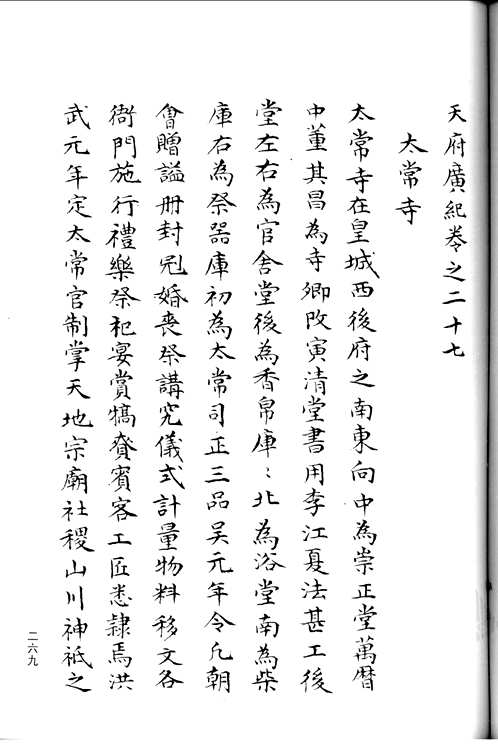 天府廣紀卷之二十七
太常寺
太常寺在皇城西後府之南東向中為崇正堂萬曆
中董其昌為寺卿改寅清堂書用李江夏法甚工後
堂左右為官舍堂後為香帛庫〻北為浴堂南為柴
庫右為祭器庫初為太常司正三品吳元年令凡朝
會贈謚册封冠婚喪祭講究儀式計量物料移文各
衙門施行禮樂祭祀宴賞犒賚賓客工匠悉隸焉洪
武元年定太常官制掌天地宗廟社稷山川神祇之
二六九